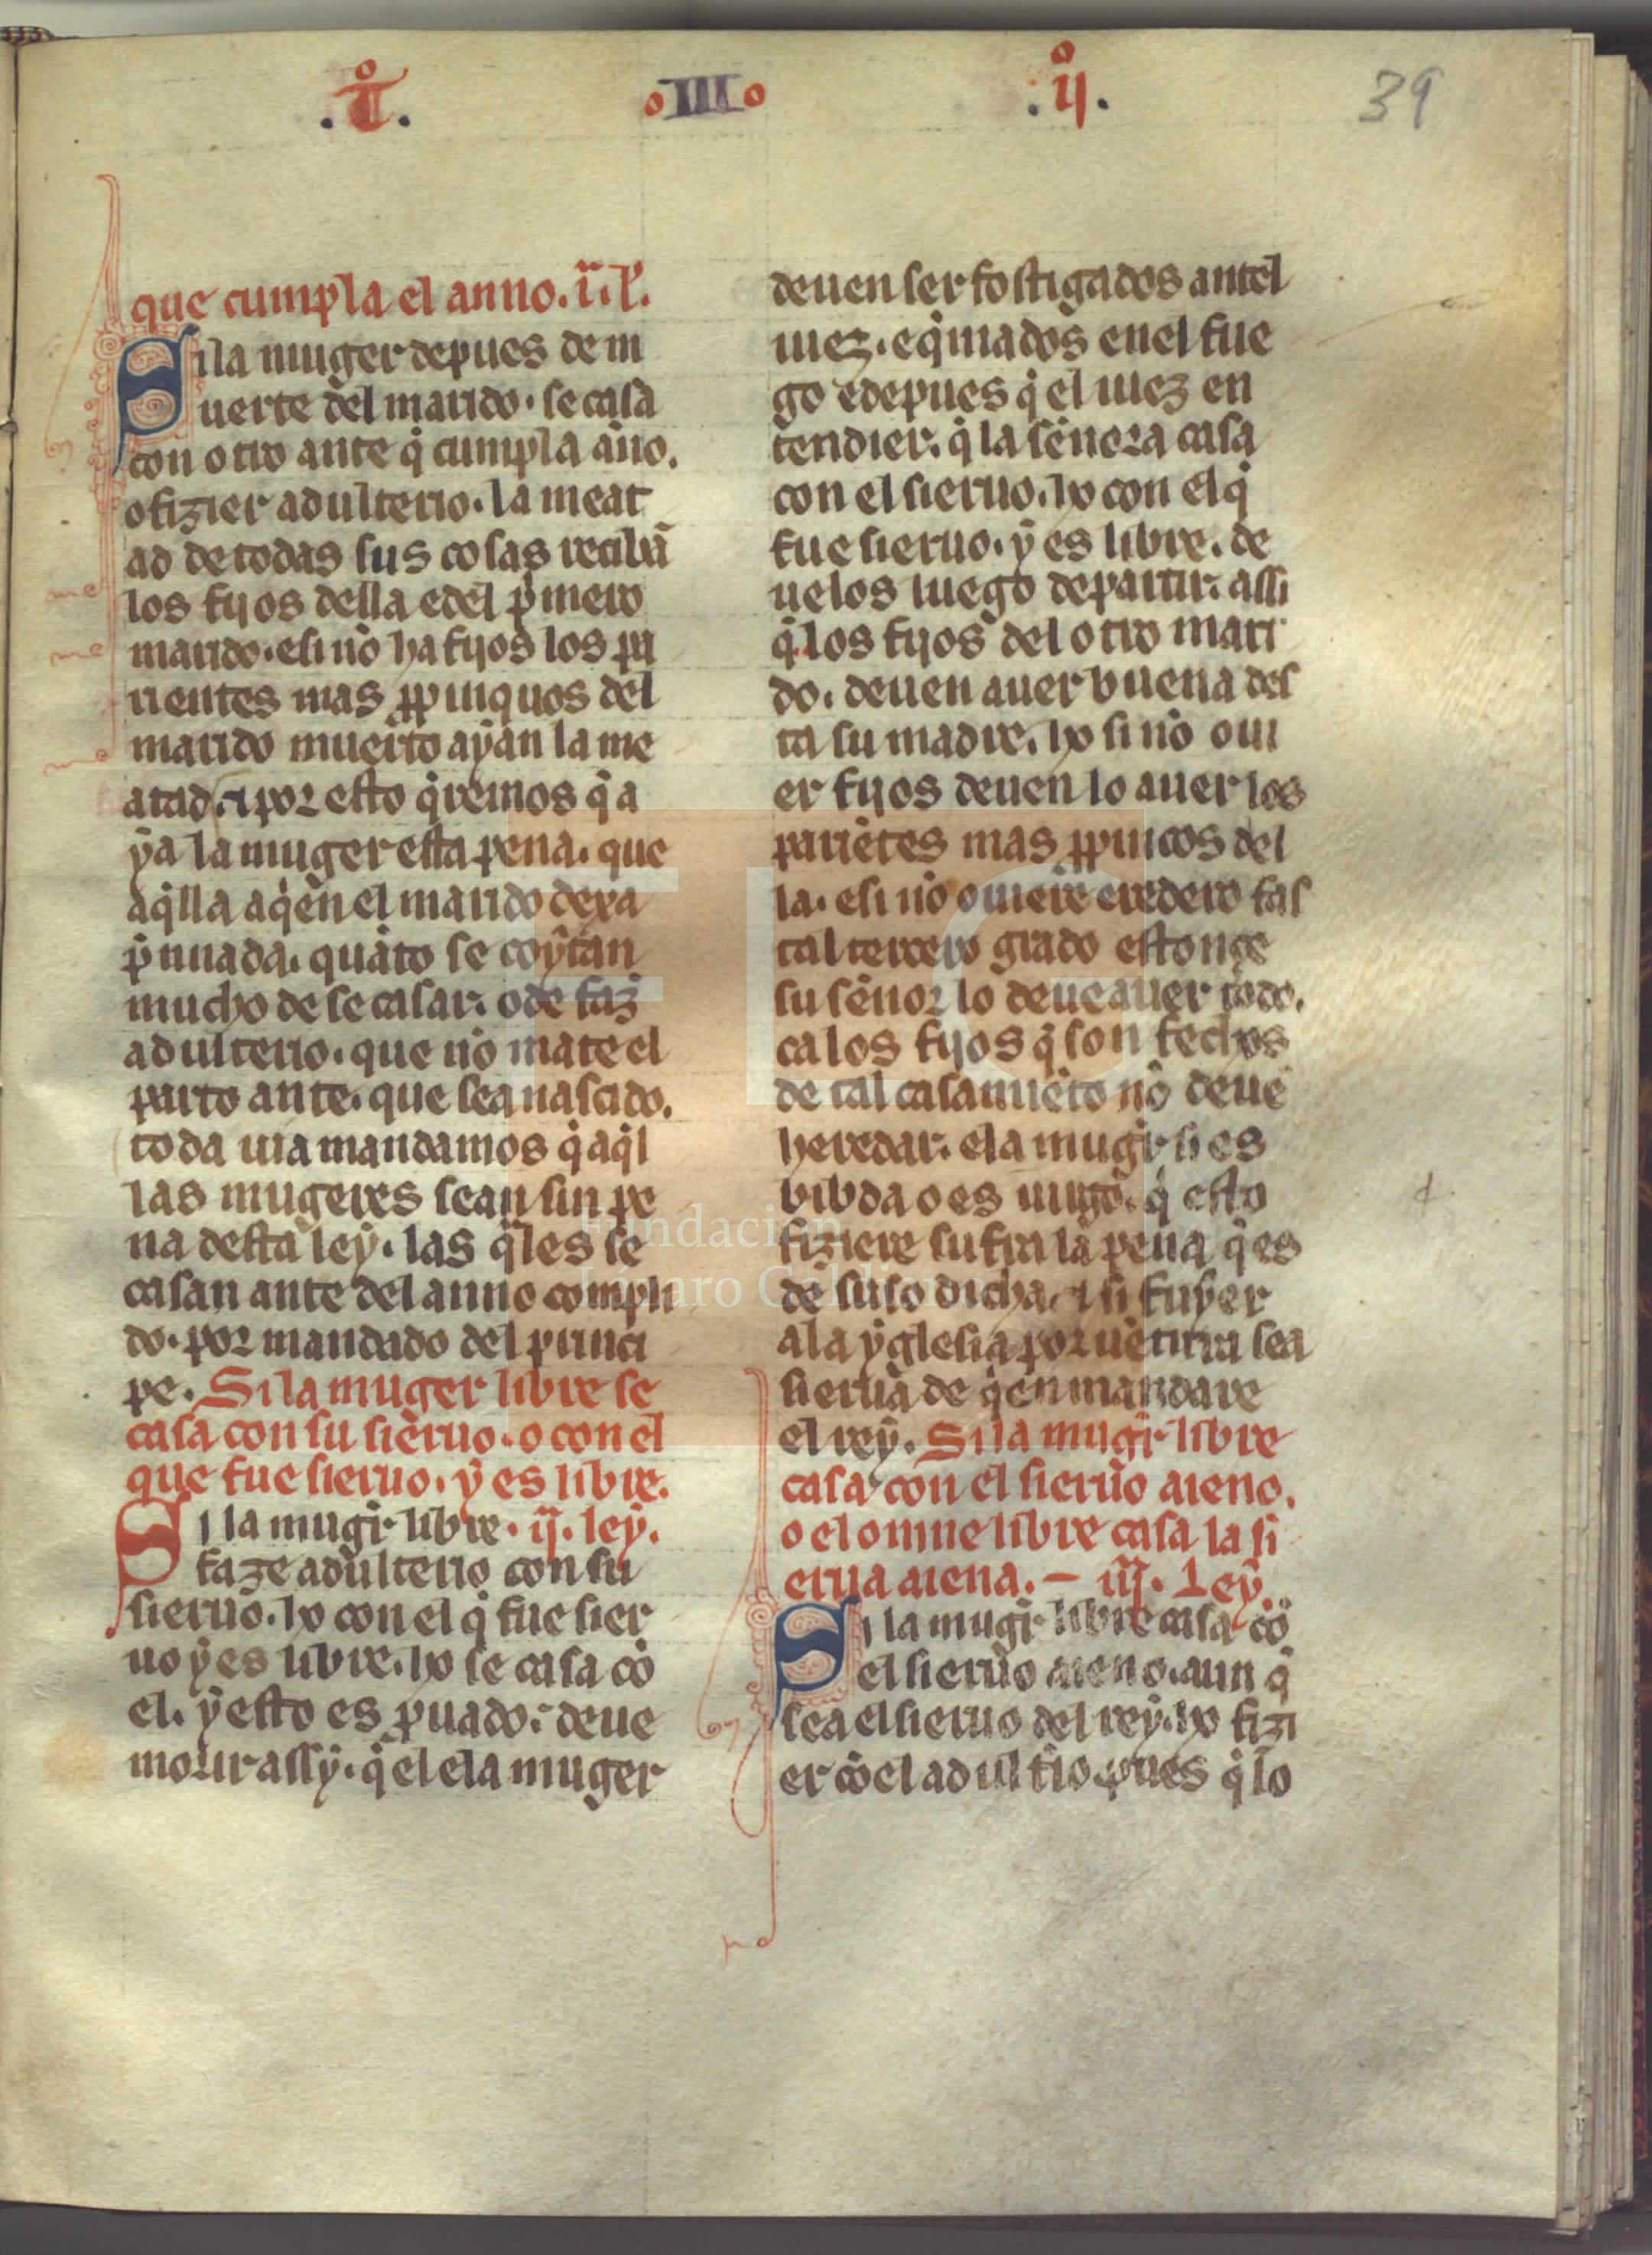 .t͛. III .ij. 39
que cumpla el anno. i. l.
Si la muger depues de m
uerte del marido. se casa
con otro ante q̇ cumpla ãno.
o fizier adulterio. la meat
ad de todas sus cosas reciba᷉
los fijos della e del ṗmero
marido. e si nõ ha fijos los pa
rientes mas ꝓpinquos del
marido muerto ayan la me
atad. ⁊ por esto q̇remos q̇ a
ya la muger esta pena. que
aq̇lla a q̇en el marido dexa
ṗnnada. quãto se coytan
mucho de se casar. o de faz̃
adulterio. que nõ mate el
parto ante. que sea nascido.
toda uia mandamos q̇ aq̇l
las mugeres sean sin pe
na desta ley. las q̃les se
casan ante del anno compli
do. por mandado del princi
pe. Si la muger libre se
casa con su sieruo. o con el
que fue sieruo. y es libre.
Si la mugr̃ libre. ij. ley.
faze adulterio con su
sieruo. ho con el q̇ fue sier
uo y es libre. ho se casa cõ
el. y esto es ꝓuado: deue
morir assy. q̇ el e la muger
deuen ser fostigados antel
iuez. e q̇mados en el fue
go e depues q̇ el iuez en
tendier. q̇ la sẽnora casa
con el sieruo. ho con el q̇
fue sieruo. y es libre. de
uelos luego departir. assi
q̇ los fijos del otro mari
do. deuen auer buena des
ta su madre. ho si nõ oui
er fijos deuen lo auer los
pariẽtes mas ꝓpincos del
la. e si nõ ouiere eredero fas
tal tercero grado estonçe
su sẽnor lo deue auer todo.
ca los fijos q̇ son fechos
de tal casamiẽto nõ deuẽ
heredar. e la mugr̃ si es
bibda o es uirgẽ. q̇ esto
fiziere sufra la pena q̇ es
de suso dicha. ⁊ si fuyer
a la yglesia por uẽtura sea
sierua de q̇en mandare
el rey. Si la mugr̃ libre
casa con el sieruo aieno.
o el omne libre casa la si
erua aiena. – iij. Ley.
Si la mugr̃ libre casa cõ
el sieruo aieno. aun q̇
sea el sieruo del rey. ho fizi
er cõ el adultĩo. pues q̇ lo
Fundación
Lázaro Galdiano